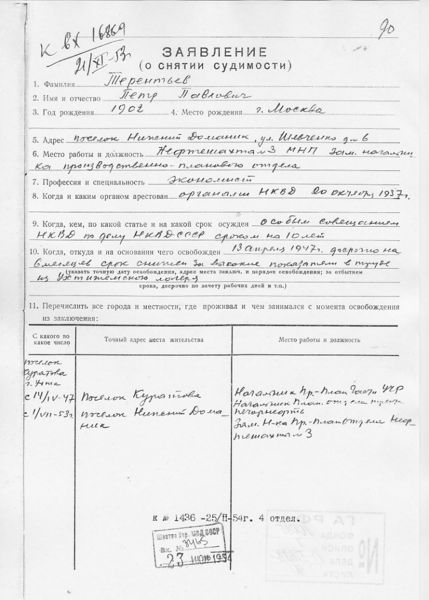 90
К вх 16869
21/XI-53г.
ЗАЯВЛЕНИЕ
(о снятии судимости)
1. Фамилия Терентьев
2. Имя и отчество Петр Павлович
3. Год рождения 1902 4. Место рождения г. Москва
5. Адрес поселок Нижний Доманик, ул. Шевченко дм 6
6. Место работы и должность Нефтешахта №3 МНП Зам. начальни-
ка производственно-планового отдела
7. Профессия и специальность экономист
8. Когда и каким органом арестован органами НКВД 20 октября 1937г.
9. Когда, кем, по какой статье и на какой срок осужден особым совещанием
НКВД по делу НКВД СССР сроком на 10 лет
10. Когда, откуда и на основании чего освобожден 13 апреля 1947г. досрочно на
6 месяцев срок снижен за высокие показатели в труде
(указать точную дату освобождения, адрес места заключ. и порядок освобождения; за отбытием
из Ухтижемского лагеря
срока, досрочно по зачету рабочих дней и т.п.)
11. Перечислить все города и местности, где проживал и чем занимался с момента освобождения
из заключения:
С какого по какое число
Точный адрес места жительства
Место работы и должность
поселок
Куратова
г. Ухта
с 14/IV-47 Поселок Куратова
Начальник Пр-План. части
Начальник План. отдела
Печорнефть
с 1/VII-53г. поселок Нижний Дома-
ника
Зам. Н-ка Пр-План отдела Неф-
тешахты 3
К № 1436 -25/П-54г. 4 отдел.
МВД СССР
Вх. №
23 ИЮЛ 1954
ГА РФ
ФОНД
ОПИСЬ
ДЕЛО
№